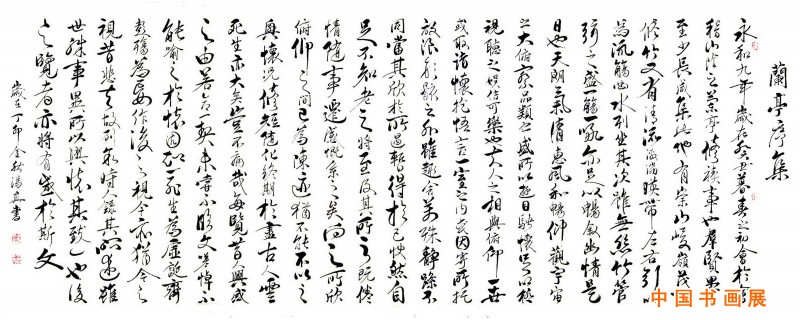 蘭亭序集
永和九年歲在癸丑暮春之初會於會
稽山陰之蘭亭修禊事也群賢畢
至少長咸集此地有崇山峻嶺茂林
修竹又有清流激湍映帶左右引以
為流觴曲水列坐其次雖無絲竹管
弦之盛一觴一詠亦足以暢敘幽情是
日也天朗氣清惠風和暢仰觀宇宙
之大俯察品類之盛所以遊目騁懷足以極
視聽之娛信可樂也夫人之相與俯仰一世
或取諸懷抱悟言一室之內或因寄所托
放浪形骸之外雖趣舍萬殊靜躁不
同當其欣於所遇暫得於己快然自
足不知老之將至及其所之既倦
情隨事遷感慨係之矣向之所欣
俯仰之間已為陳迹猶不能不以之
興懷況修短隨化終期於盡古人云
死生亦大矣豈不痛哉每覽昔興感
之由若合一契未嘗不臨文嗟悼不
能喻之於懷固知一死生為虛誕齊
彭殤為妄作後之視今亦猶今之
視昔悲夫故列敘時人錄其所述雖
世殊事異所以興懷其致一也後
之覽者亦將有感於斯文
歲在丁卯書
中国书画展